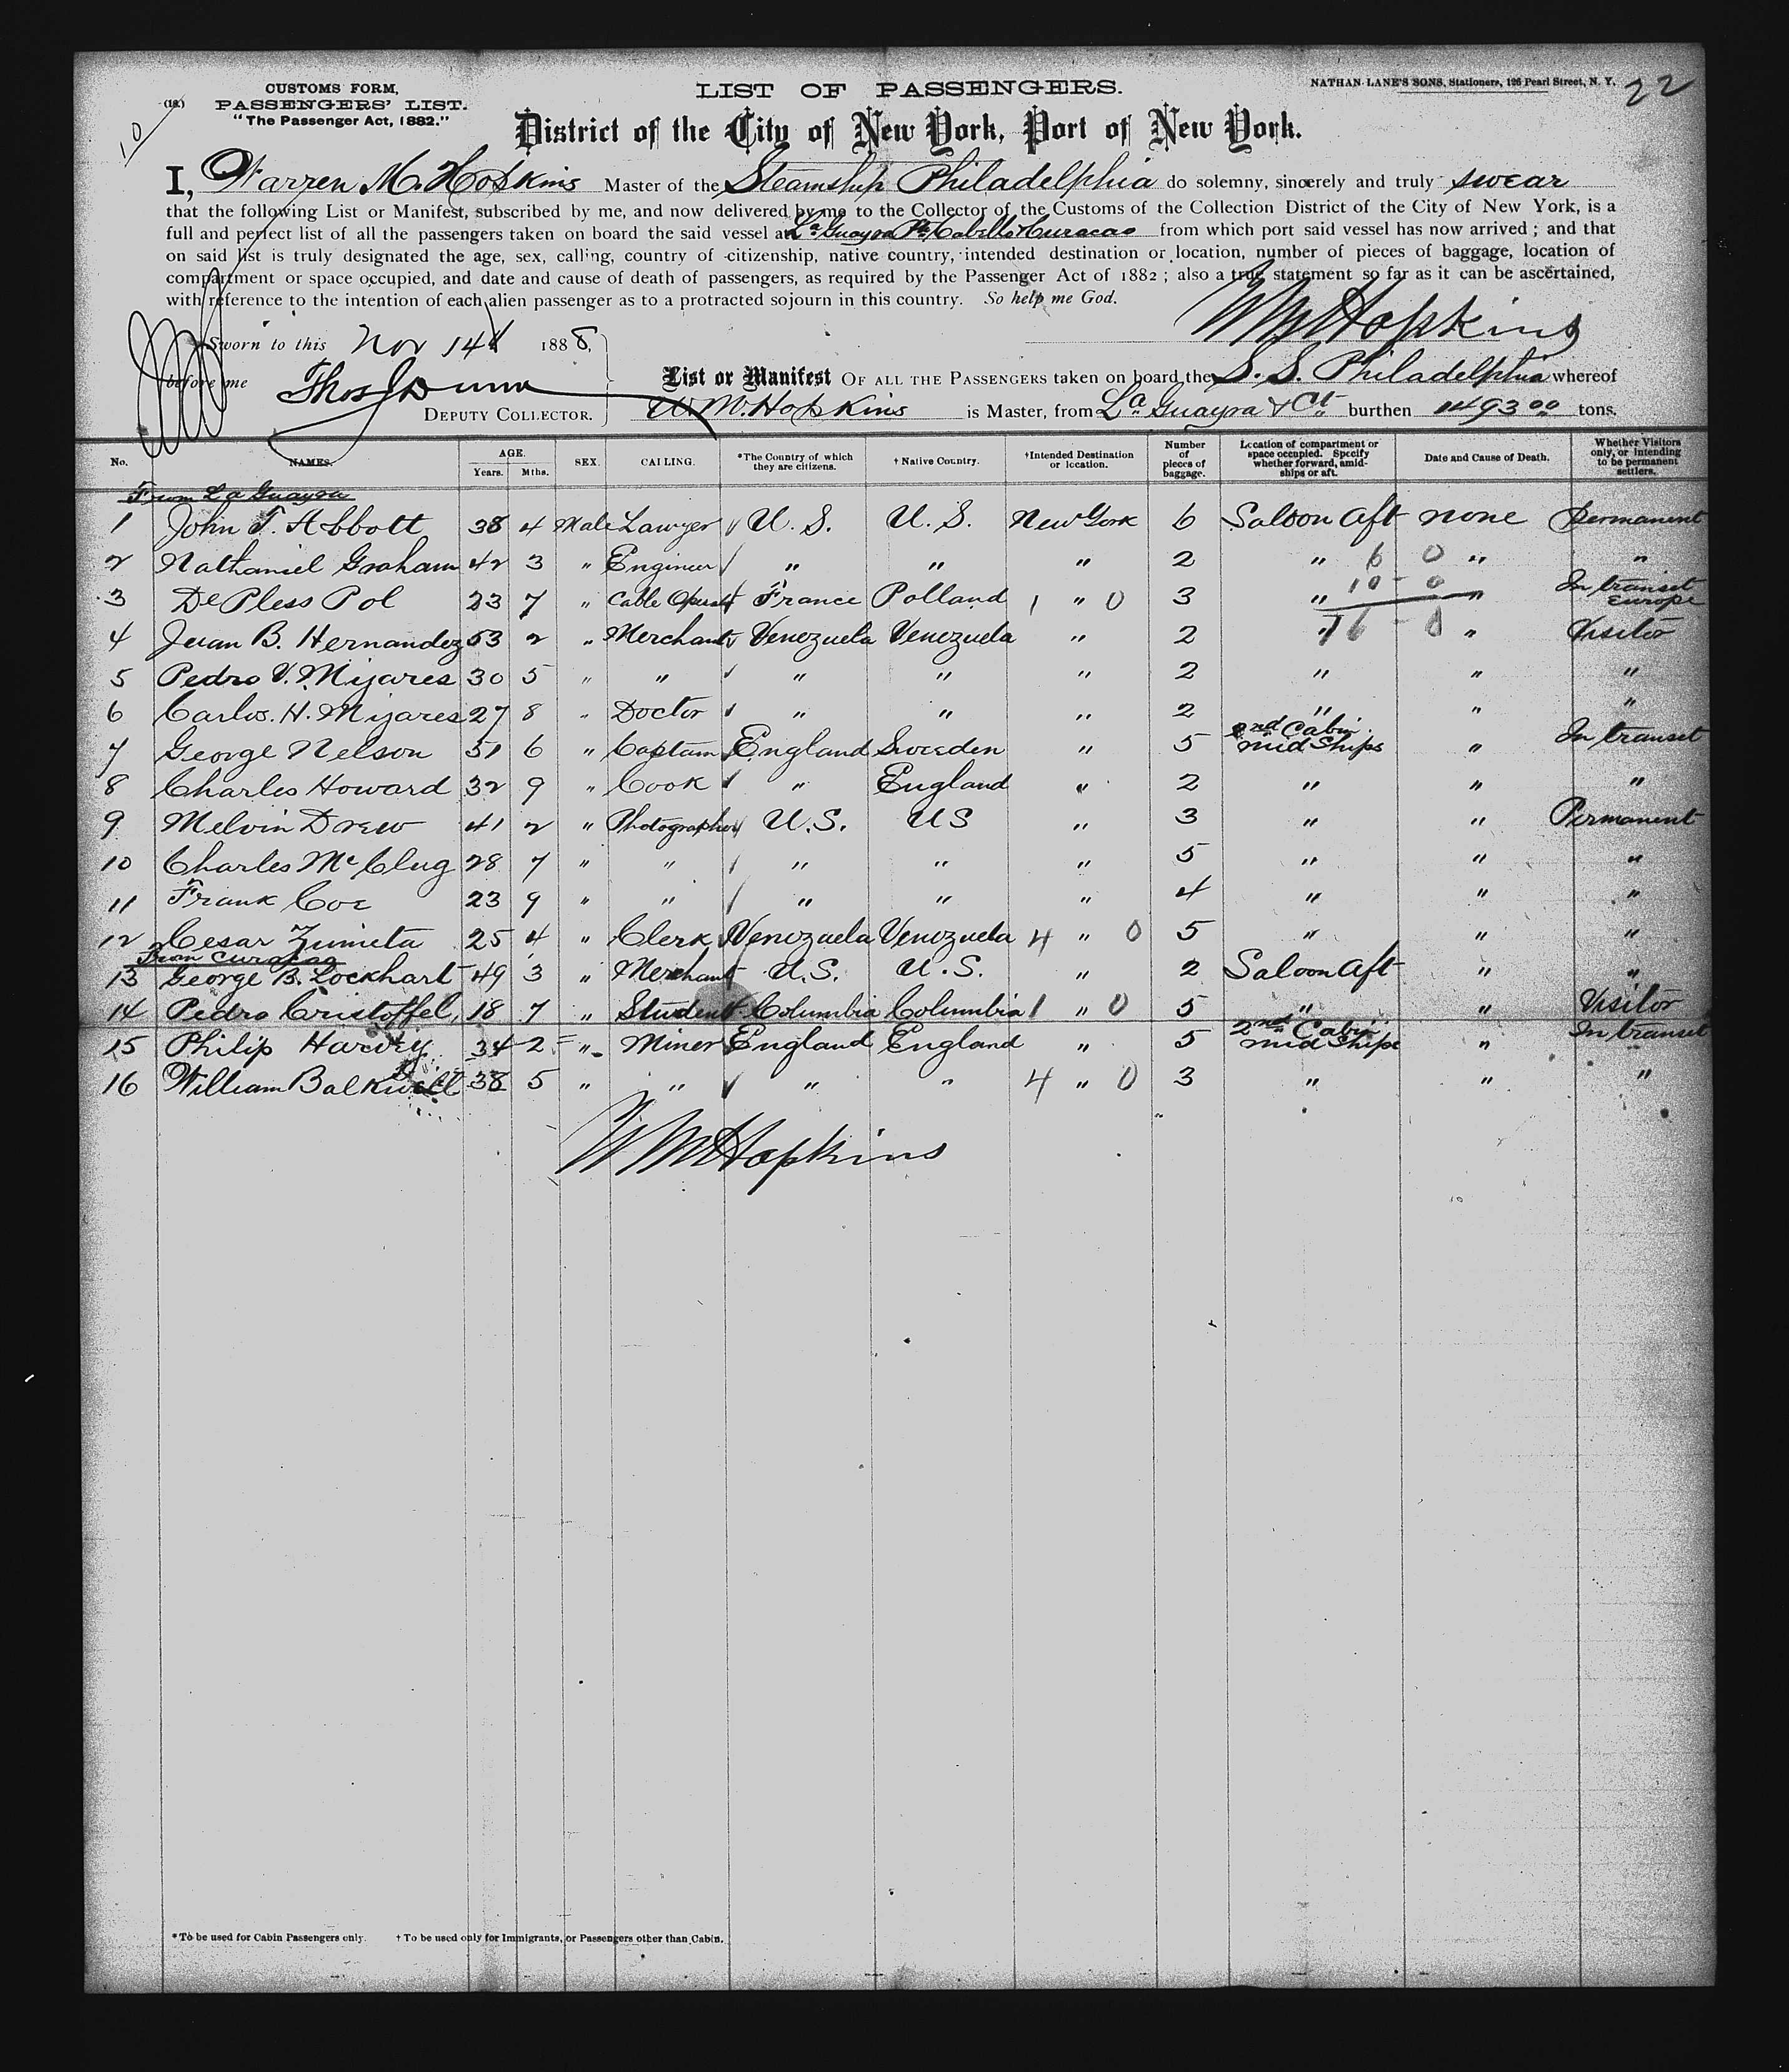 CUSTOMS FORM,
PASSENGERS' LIST.
"The Passenger Act, 1882."
10
LIST OF PASSENGERS.
NATHAN LANE'S SONS, Stationers, 126 Pearl Street, N. Y.
22
District of the City of New York, Port of New York.
I, Warren M. Hopkins Master of the Steamship Philadelphia do solemny, sincerely and truly swear
that the following List or Manifest, subscribed by me, and now delivered by me to the Collector of the Customs of the Collection District of the City of New York, is a
full and perfect list of all the passengers taken on board the said vessel at La Guayra Pto Cabello & Curacao from which port said vessel has now arrived ; and that
on said list is truly designated the age, sex, calling, country of citizenship, native country, intended destination or location, number of pieces of baggage, location of
compartment or space occupied, and date and cause of death of passengers, as required by the Passenger Act of 1882 ; also a true statement so far as it can be ascertained,
with reference to the intention of each alien passenger as to a protracted sojourn in this country. So help me God.
WM Hopkins
Sworn to this Nov 14th 1888,
before me Thos J Dunn
DEPUTY COLLECTOR.
List or Manifest OF ALL THE PASSENGERS taken on board the S. S. Philadelphia whereof
W. M. Hopkins is Master, from La Guayra & Ct burthen 1493 00 tons.
No. NAMES. AGE. Years. Mths. SEX. CALLING. *The Country of which they are citizens. † Native Country. †Intended Destination or location. Number of pieces of baggage. Location of compartment or space occupied. Specify whether forward, amidships or aft. Date and Cause of Death. Whether Visitors only, or intending to be permanent settlers.
From La Guayra
1 John T. Abbott 38 4 Male Lawyer U. S. U. S. New York 6 Saloon Aft none Permanent
2 Nathaniel Graham 42 3 " Engineer " " " 2 " 6 0 " "
3 De Pless Pol 23 7 " Cable Operat France Polland 1 " 0 3 " 10 - 0 " In transet Europe
4 Juan B. Hernandez 53 2 " Merchant Venezuela Venezuela " 2 " 16 - 0 " Visitor
5 Pedro V. Mijares 30 5 " " " " " 2 " " "
6 Carlos. H. Mijares 27 8 " Doctor " " " 2 " " "
7 George Nelson 51 6 " Captain England Sweden " 5 2nd Cabin mid Ships " In transet
8 Charles Howard 32 9 " Cook " England " 2 " " "
9 Melvin Drew 41 2 " Photographer U.S. US " 3 " " Permanent
10 Charles McClug 28 7 " " " " " 5 " " "
11 Frank Coe 23 9 " " " " " 4 " " "
12 Cesar Zumeta 25 4 " Clerk Venezuela Venezuela 4 " 0 5 " " "
From Curacao
13 George B. Lockhart 49 3 " Merchant U.S. U.S. " 2 Saloon Aft " "
14 Pedro Cristoffel, 18 7 " Student Columbia Columbia 1 " 0 5 " " Visitor
15 Philip Harvey 34 2 " Miner England England " 5 2nd Cabin mid Ships " In transet
16 William Balkwill 38 5 " " " " 4 " 0 3 " " "
W M Hopkins
*To be used for Cabin Passengers only. † To be used only for Immigrants, or Passengers other than Cabin.